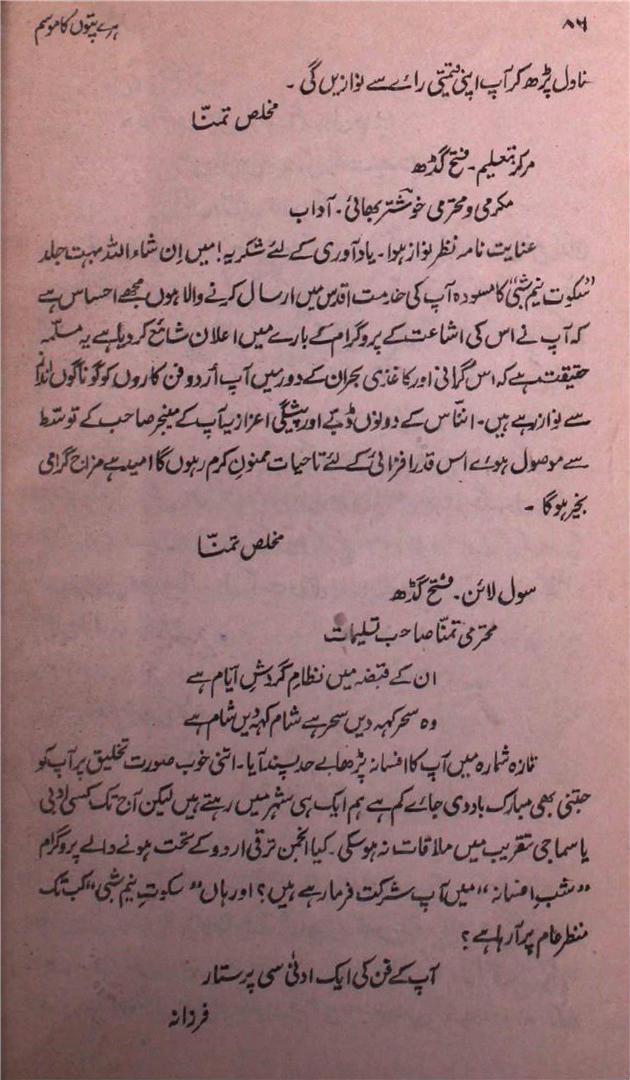 ۸۶
ہرے پتّوں کا موسم
ناول پڑھ کر آپ اپنی قیمتی رائے سے نوازیں گی ۔
مخلص تمنّا
مرکز تعلیم ۔ فتح گڈھ
مکرمی و محترمی خوشتر بھائی ۔ آداب
عنایت نامہ نظر نواز ہوا ۔ یاد آوری کے لئے شکریہ! میں اِن شاء اللہ بہت جلد
"سکوت نیم شبی" کا مسودہ آپ کی خدمت اقدس میں ارسال کرنے والا ہوں مجھے احساس ہے
کہ آپ نے اس کی اشاعت کے پروگرام کے بارے میں اعلان شائع کر دیا ہے یہ مسلّمہ
حقیقت ہے کہ اس گرانی اور کاغذی بحران کے دور میں آپ اُردو فن کاروں کو گوناگوں
سے نواز رہے ہیں ۔ انناس کے دونوں ڈبّے اور پیشگی اعزازیہ آپ کے منیجر صاحب کے توسّط
سے موصول ہوئے اس قدر افزائی کے لئے تا حیات ممنونِ کرم رہوں گا امید ہے مزاج گرامی
بخیر ہو گا ۔
مخلص تمنّا
سول لائن ۔ فتح گڈھ
محترمی تمنّا صاحب تسلیمات
ان کے قبضہ میں نظامِ گردشِ ایّام ہے
وہ سحر کہہ دیں سحر ہے شام کہہ دیں شام ہے
تازہ شمارہ میں آپ کا افسانہ پڑھا بے حد پسند آیا ۔ اتنی خوب صورت تخلیق پر آپ کو
جتنی بھی مبارک باد دی جائے کم ہے ہم ایک ہی شہر میں رہتے ہیں لیکن آج تک کسی ادبی
یا سماجی تقریب میں ملاقات نہ ہو سکی ۔ کیا انجمن ترقی اردو کے تحت ہونے والے پروگرام
"شبِ افسانہ" میں آپ شرکت فرما رہے ہیں؟ اور ہاں "سکوتِ نیم شبی" کب تک
منظر عام پر آ رہا ہے؟
آپ کے فن کی ایک ادنیٰ سی پرستار
فرزانہ